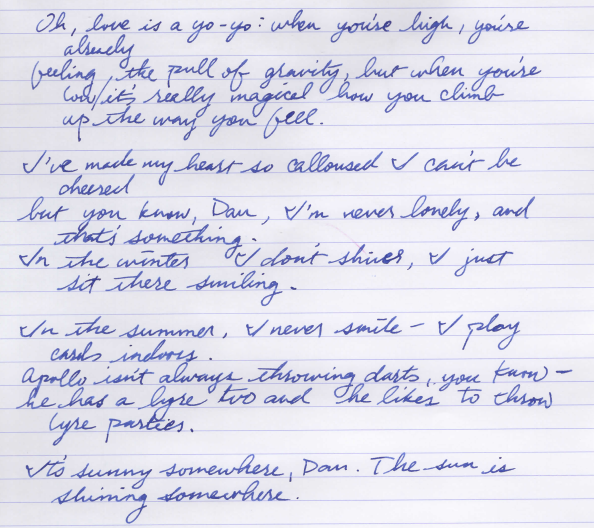 Oh, love is a yo-yo: when you're high, you're
already
feeling the pull of gravity, but when you're
low/it's really magical how you climb
up the way you fell.
I've made my heart so calloused I can't be
cheered
but you know, Dan, I'm never lonely, and
that's something.
In the winter I don't shiver, I just
sit there smiling.
In the summer, I never smile – I play
cards indoors.
Apollo isn't always throwing darts, you know –
he has a lyre two and he likes to throw
lyre parties.
It's sunny somewhere, Dan. The sun is
shining somewhere.